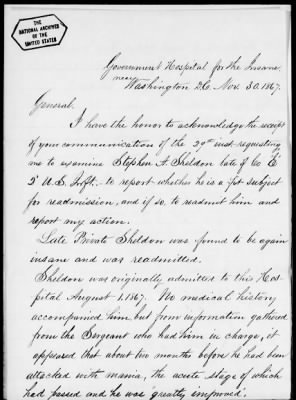 THE
NATIONAL ARCHIVES
OF THE
UNITED STATES
Government Hospital for the Insane,
near
Washington D.C. Nov. 30. 1867.
General,
I have the honor to acknowledge the receipt
of your communication of the 29" inst. requesting
me to examine Stephen A. Sheldon late of Co E
5" U.S. Inft. - to report whether he is a fit subject
for readmission, and if so, to readmit him and
report my action.
Late Private Sheldon was found to be again
insane and was readmitted.
Sheldon was originally admitted to this Hos-
pital August 1, 1867. No medical history
accompanied him, but from information gathered
from the Sergeant who had him in charge, it
appeared that about two months before he had been
attacked with mania, the acute stage of which
had passed and he was greatly improved.